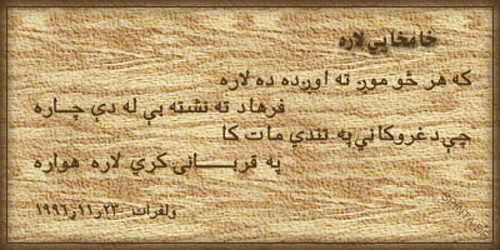 خامخا يې لاره
که هر څو مو ته اوږده ده لاره
فرهاد ته نشته بې له دې چاره
چې د غرو کاڼي په تندي مات کا
په قربانۍ کړي لاره هواره
ولفرات ۲۳ر۱۱ر۱۹۹٦